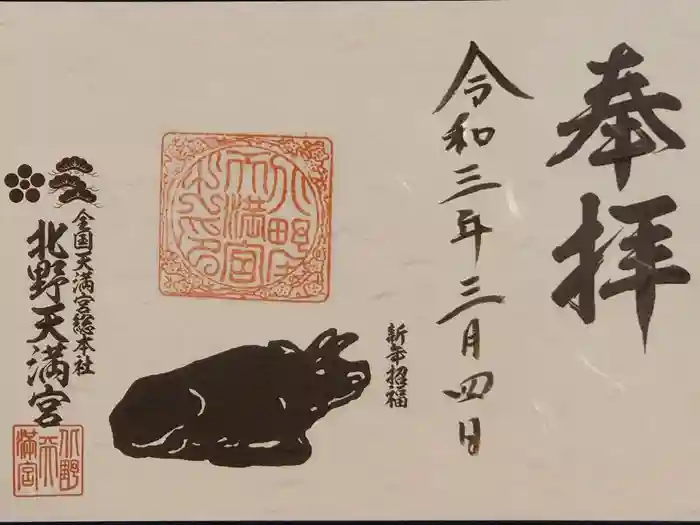 奉拝
令和三年三月四日
新年招福
全国天満宮総本社
北野天満宮
北野
天
満宮